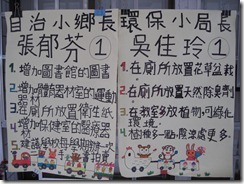 自治小鄉長
張郁芬①
1. 增加圖書館的圖書
2. 增加體育器材室的運動
器材
3. 在廁所放置衛生紙
4. 增加保健室的醫療
5. 建議學校每學期辦一次
環保小局長
吳佳玲①
1. 在廁所放置花草盆栽
2. 在廁所放置天然除臭劑
3. 在教室多放植物,可綠化
環境
4. 樹種多一點,除涼處更多